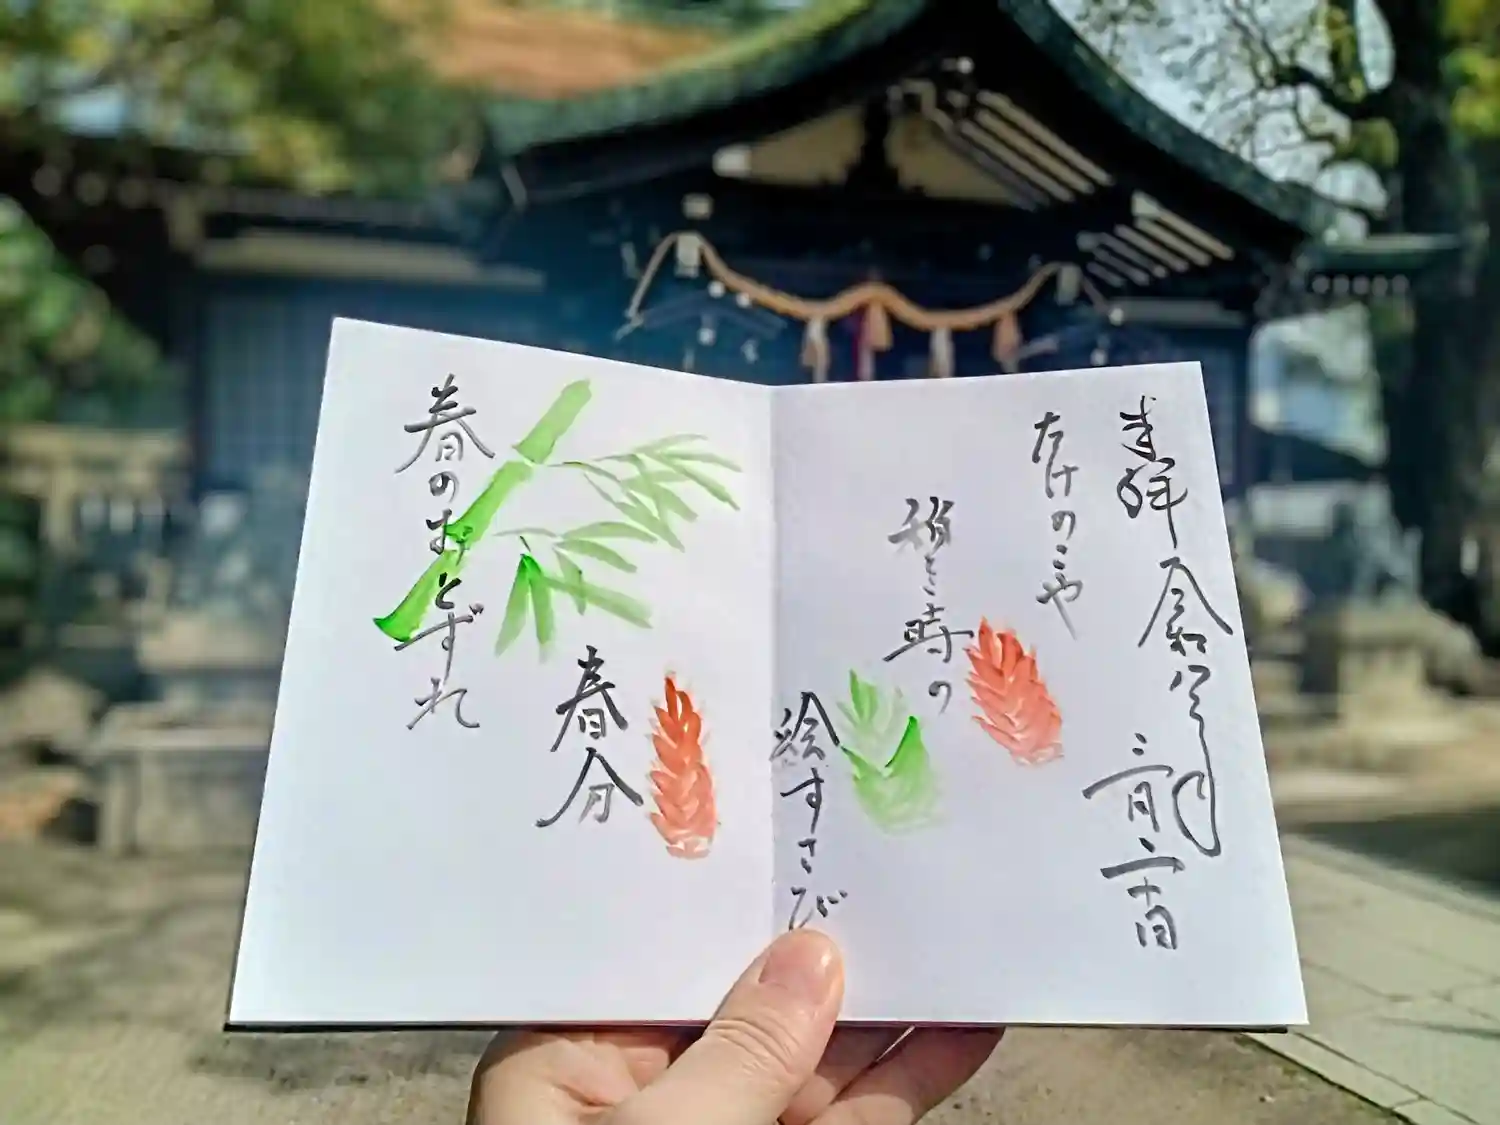 奉拝 令和四年
三月二十日
たけのこや
稍と時の
絵すさび
春分
春のおとずれ